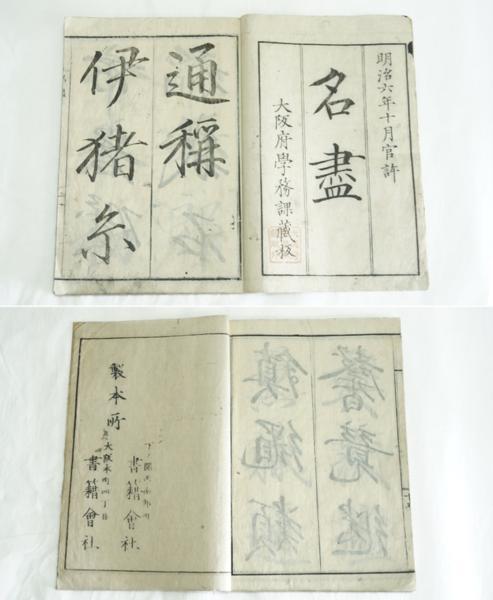 明治六年十月官許
名盡
大阪府學務課藏板
通稱
伊猪糸
製本所
書籍會社
大阪本町四丁目
書籍會社